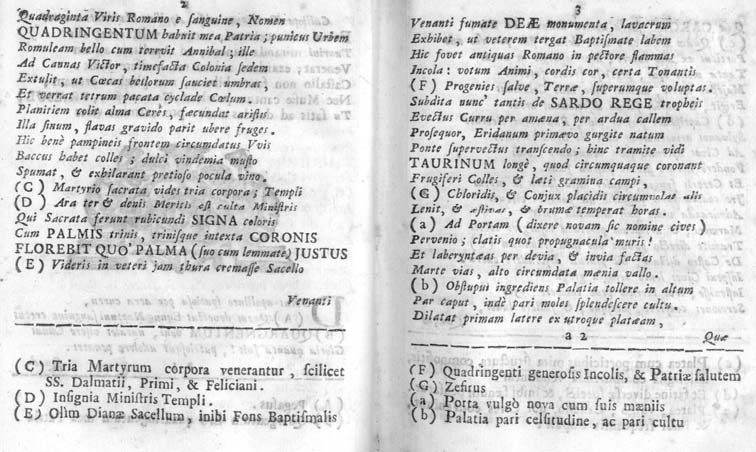 2
Quadraginta Viris Romano e sanguine, Nomen
QUADRINGENTUM habuit mea Patria; punicus Urbem
Romuleam bello cum terrvit Annibal; ille
Ad Cannas Victor, timefacta Colonia sedem
Extulit, ut Cœcas bellorum fauciet umbras,
Et verrat tetrum pacata cyclade Cœlum.
Planitiem colit alma Cerès, fæcundat aristis
Illa sinum, flavas gravido parit ubere fruges.
Hic benè pampineis frontem circumdatus Vvis
Baccus habet colles; dulci vindemia musto
Spumat, & exhilarant pretioso pocula vino.
(C) Martyrio sacrata vides tria corpora; Templi
(D) Ara ter & denis Meritis est culta Ministris
Qui Sacrata ferunt rubicundi SIGNA coloris
Cum PALMIS trinis, trinisque intexta CORONIS
FLOREBIT QUO' PALMA (suo cum lemmate) JUSTUS
(E) Videris in veteri jam thura cremasse Sacello
Venanti
(C) Tria Martyrum corpora venerantur, scilicet
SS. Dalmatii, Primi, & Feliciani.
(D) Insignia Ministris Templi.
(E) Olim Dianæ Sacellum, inibi Fons Baptismalis
3
Venanti fumate DEÆ monumenta, lavacrum
Exhibet, ut veterem tergat Baptismate labem
Hic fovet antiquas Romano in pectore flammas
Incola: votum Animi, cordis cor, certa Tonantis
(F) Progenies salve, Terræ, superumque voluptas.
Subdita nunc tantis de SARDO REGE tropheis
Evectus Curru per amæna, per ardua callem
Prosequor, Eridanum primævo gurgite natum
Ponte supervectus transcendo; hinc tramite vidi
TAURINUM longè, quod circumquaque coronant
Frugiferi Colles, & læti gramina campi,
(G) Chloridis, & Conjux placidis circumvolat alis
Lenit, & æstivas, & brumæ temperat horas.
(a) Ad Portam (dixere novam sic nomine cives)
Pervenio; clatis quot propugnacula muris!
Et labyrintæas per devia, & invia factas
Marte vias, alto circumdata mænia vallo.
(b) Obstupui ingrediens Palatia tollere in altum
Par caput, indè pari moles splendescere cultu
Dilatat primam latere ex utroque plateam,
a 2 Quæ
(F) Quadringenti generosis Incolis, & Patriæ salutem
(G) Zefirus
(a) Porta vulgò nova cum suis mæniis
(b) Palatia pari celsitudine, ac pari cultu